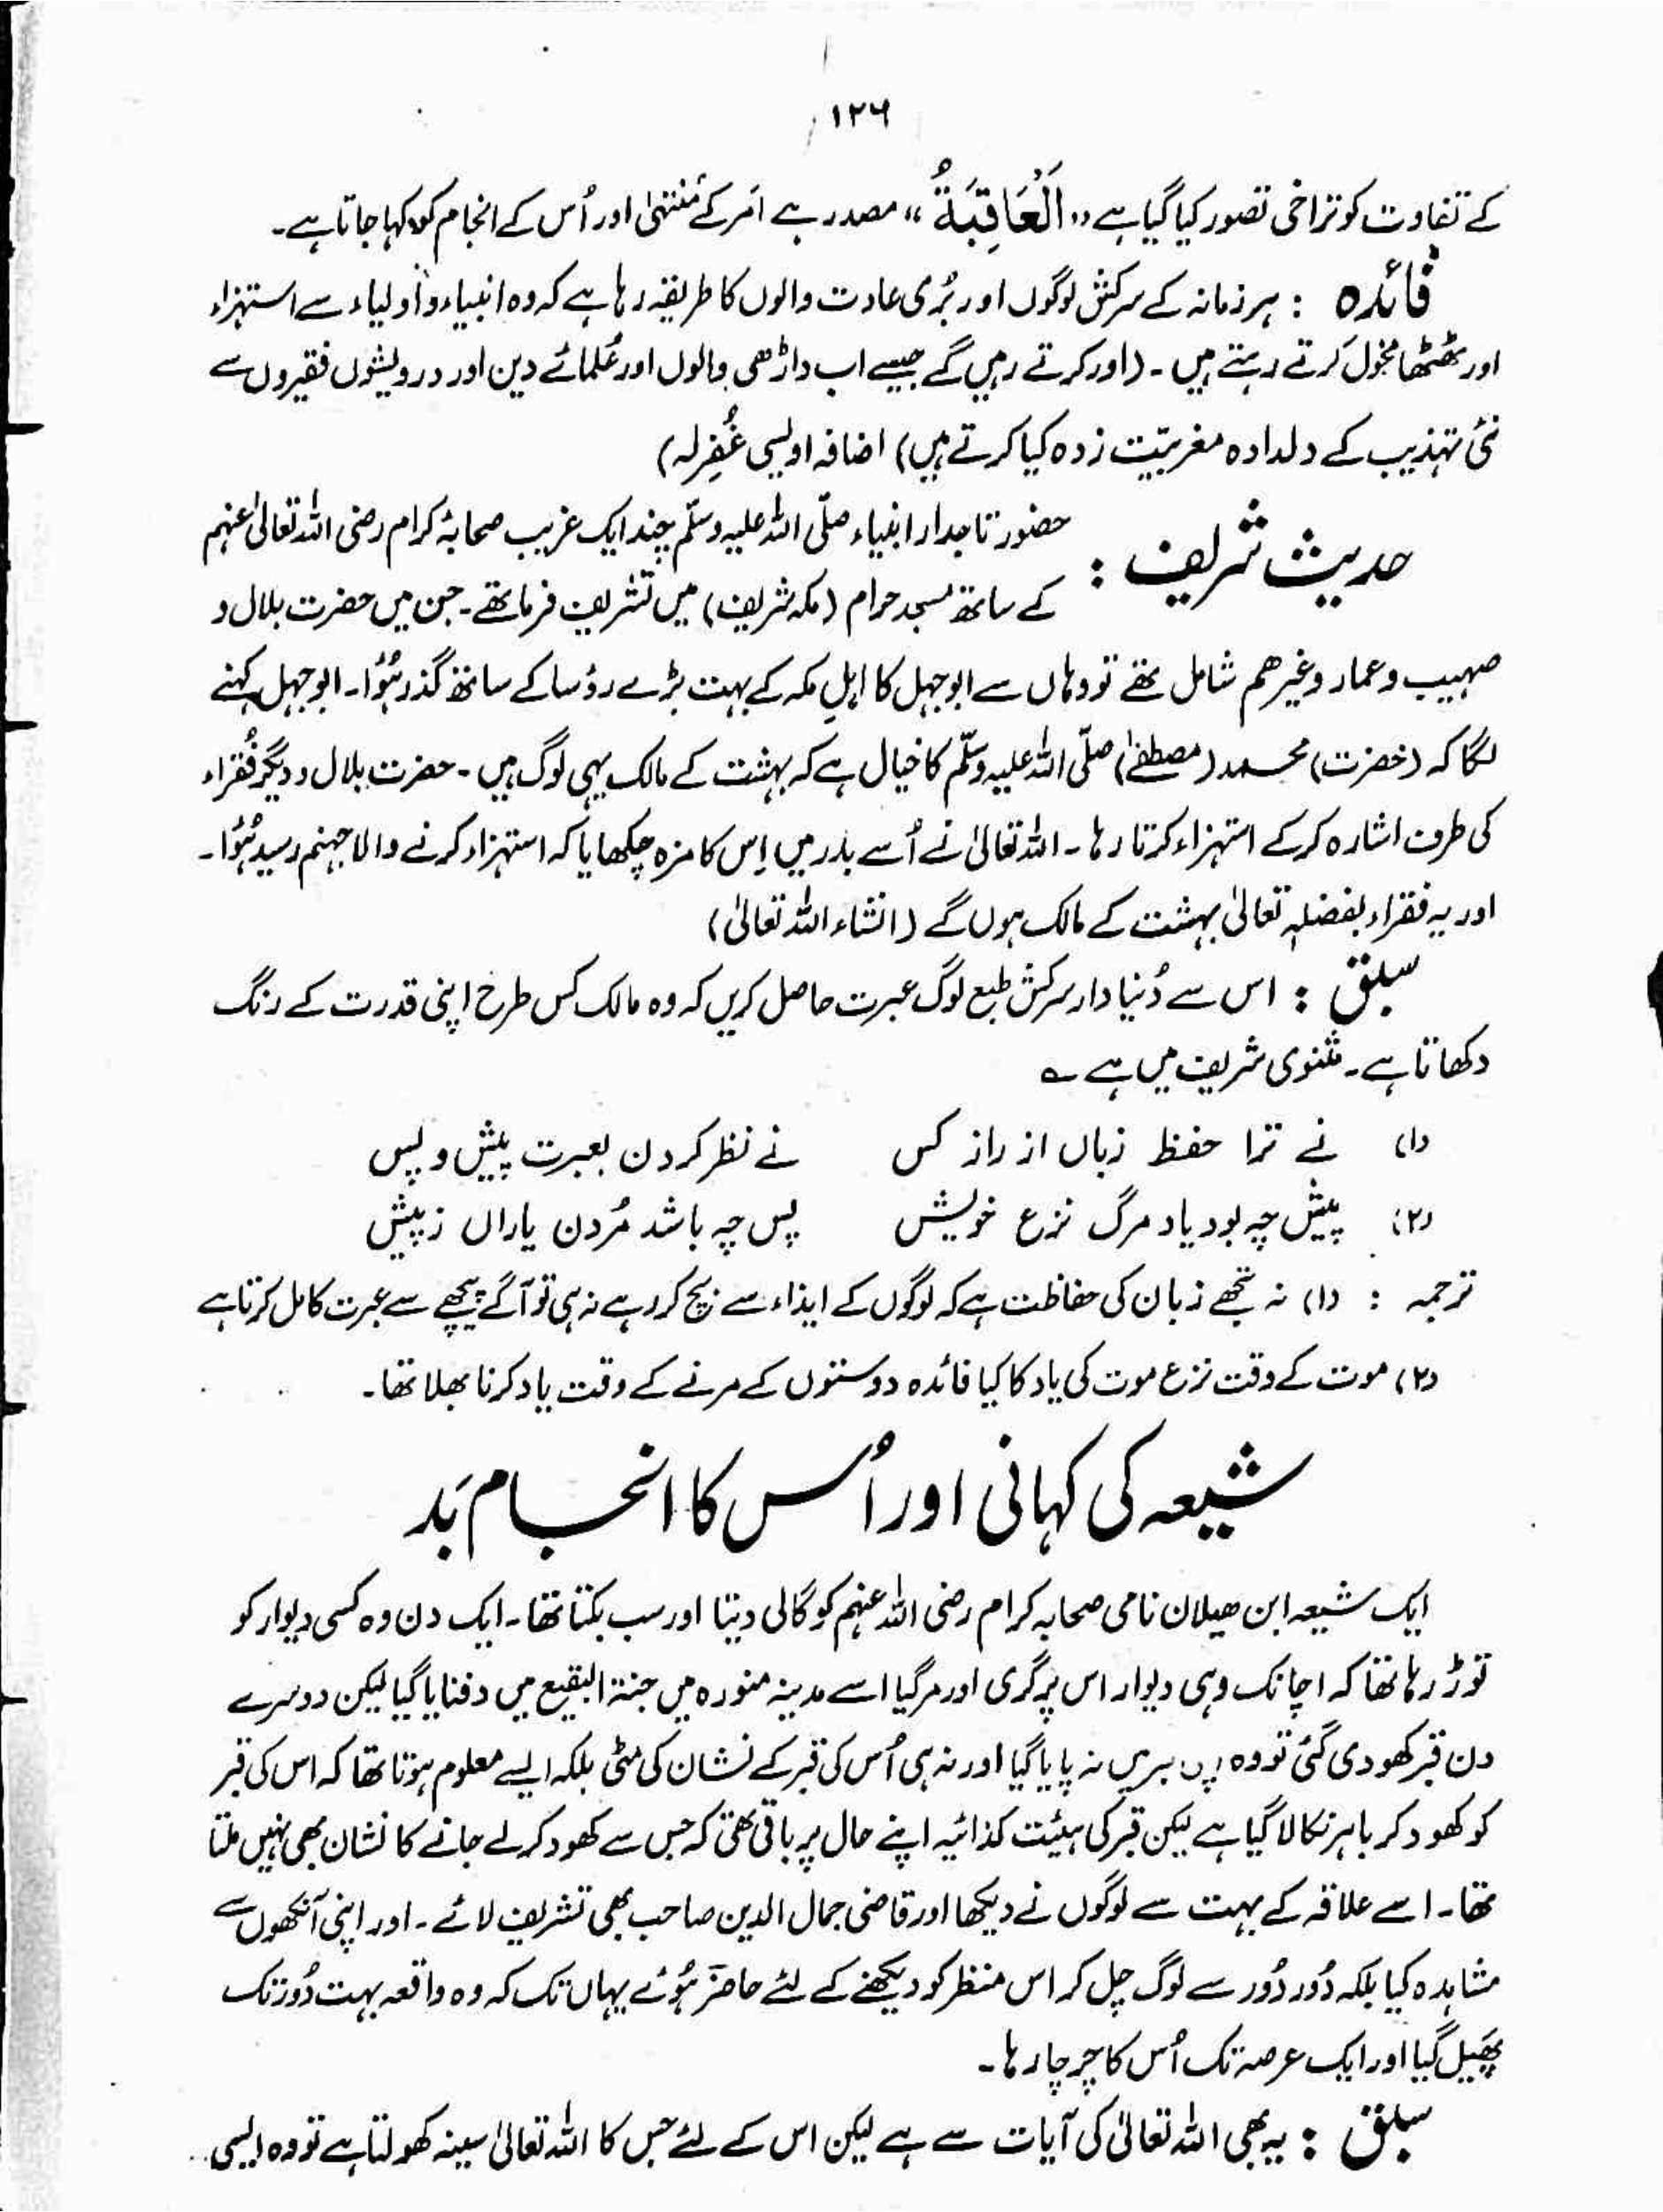 ۱۲۶
کے تفاوت کو تراخی تصور کیا گیا ہے ،، اَلْعَاقِبَةُ ،، مصدر ہے اَمر کے مُنتہیٰ اور اُس کے انجام کو کہا جاتا ہے۔
فائدہ : ہر زمانہ کے سرکش لوگوں اور بُری عادت والوں کا طریقہ رہا ہے کہ وہ انبیاء و اَولیاء سے استہزاء
اور ٹھٹھا مخول کرتے رہتے ہیں ۔ (اور کرتے رہیں گے جیسے اب داڑھی والوں اور عُلمائے دین اور درویشوں فقیروں سے
نئی تہذیب کے دلدادہ مغربیّت زدہ کیا کرتے ہیں) اضافہ اویسی غُفِرلہ)
حدیث شریف : حضور تاجدار انبیاء صلّی اللہ علیہ وسلّم چند ایک غریب صحابۂ کرام رضی اللہ تعالیٰ عنہم
کے ساتھ مسجد حرام (مکہ شریف) میں تشریف فرما تھے۔ جن میں حضرت بلال و
صہیب و عمار و غیرھم شامل تھے تو وہاں سے ابوجہل کا اہلِ مکہ کے بہت بڑے رؤسا کے ساتھ گذر ہُوا۔ ابوجہل کہنے
لگا کہ (حضرت) محمد (مصطفےٰ) صلّی اللہ علیہ وسلّم کا خیال ہے کہ بہشت کے مالک یہی لوگ ہیں ۔ حضرت بلال و دیگر فُقراء
کی طرف اشارہ کر کے استہزاء کرتا رہا ۔ اللہ تعالیٰ نے اُسے بدر میں اِس کا مزہ چکھایا کہ استہزاء کرنے والا جہنم رسید ہُوا۔
اور یہ فقراء بفضلہٖ تعالیٰ بہشت کے مالک ہوں گے (انشاء اللہ تعالیٰ)
سبق : اس سے دُنیا دار سرکش طبع لوگ عبرت حاصل کریں کہ وہ مالک کس طرح اپنی قدرت کے رنگ
دکھاتا ہے۔ مثنوی شریف میں ہے ؎
(۱) نے ترا حفظ زباں از راز کس نے نظر کردن بعبرت پیش و پس
(۲) پیش چہ بود یاد مرگ نزع خویش پس چہ باشد مُردن یاراں ز پیش
ترجمہ : (۱) نہ تجھے زبان کی حفاظت ہے کہ لوگوں کے ایذاء سے بچ کر رہے نہ ہی تو آگے پیچھے سے عبرت کامل کرتا ہے
(۲) موت کے وقت نزع موت کی یاد کا کیا فائدہ دوستوں کے مرنے کے وقت یاد کرنا بھلا تھا۔
شیعہ کی کہانی اور اُس کا انجام بَد
ایک شیعہ ابن ھیلان نامی صحابہ کرام رضی اللہ عنہم کو گالی دیتا اور سب بکتا تھا۔ ایک دن وہ کسی دیوار کو
توڑ رہا تھا کہ اچانک وہی دیوار اس پر گری اور مر گیا اسے مدینہ منورہ میں جنۃ البقیع میں دفنایا گیا لیکن دوسرے
دن قبر کھودی گئی تو وہ نہ پایا گیا اور نہ ہی اُس کی قبر کے نشان کی مٹی بلکہ ایسے معلوم ہوتا تھا کہ اس کی قبر
کو کھود کر باہر نکالا گیا ہے لیکن قبر کی ہیئت کذائیہ اپنے حال پر باقی تھی کہ جس سے کھود کر لے جانے کا نشان بھی نہیں ملتا
تھا۔ اسے علاقہ کے بہت سے لوگوں نے دیکھا اور قاضی جمال الدین صاحب بھی تشریف لائے ۔ اور اپنی آنکھوں سے
مشاہدہ کیا بلکہ دُور دُور سے لوگ چل کر اس منظر کو دیکھنے کے لئے حاضر ہُوئے یہاں تک کہ وہ واقعہ بہت دُور تک
پھیل گیا اور ایک عرصہ تک اُس کا چرچا رہا ۔
سبق : یہ بھی اللہ تعالیٰ کی آیات سے ہے لیکن اس کے لئے جس کا اللہ تعالیٰ سینہ کھولتا ہے تو وہ ایسی